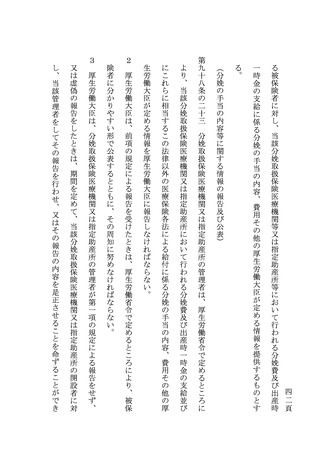 四二頁
る被保険者に対し、当該分娩取扱保険医療機関等又は指定助産所等において行われる分娩費及び出産時
一時金の支給に係る分娩の手当の内容、費用その他の厚生労働大臣が定める情報を提供するものとす
る。
（分娩の手当の内容等に関する情報の報告及び公表）
第九十八条の二十三　分娩取扱保険医療機関又は指定助産所の管理者は、厚生労働省令で定めるところに
より、当該分娩取扱保険医療機関又は指定助産所において行われる分娩費及び出産時一時金の支給並び
にこれらに相当するこの法律以外の医療保険各法による給付に係る分娩の手当の内容、費用その他の厚
生労働大臣が定める情報を厚生労働大臣に報告しなければならない。
２　厚生労働大臣は、前項の規定による報告を受けたときは、厚生労働省令で定めるところにより、被保
険者に分かりやすい形で公表するとともに、その周知に努めなければならない。
３　厚生労働大臣は、分娩取扱保険医療機関又は指定助産所の管理者が第一項の規定による報告をせず、
又は虚偽の報告をしたときは、期間を定めて、当該分娩取扱保険医療機関又は指定助産所の開設者に対
し、当該管理者をしてその報告を行わせ、又はその報告の内容を是正させることを命ずることができ